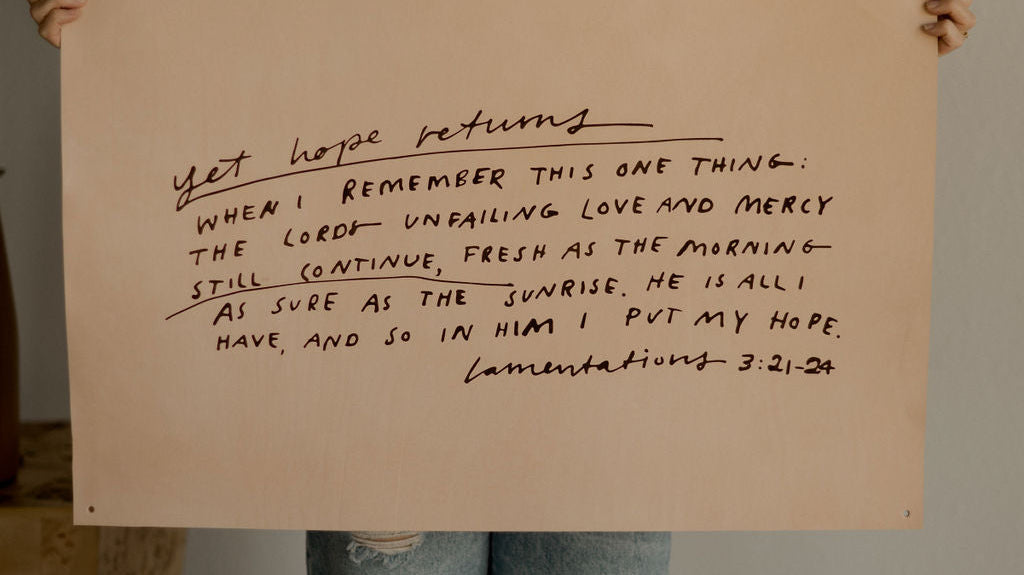 yet hope returns
WHEN I REMEMBER THIS ONE THING:
THE LORDS UNFAILING LOVE AND MERCY
STILL CONTINUE, FRESH AS THE MORNING
AS SURE AS THE SUNRISE. HE IS ALL I
HAVE, AND SO IN HIM I PUT MY HOPE.
Lamentations 3:21-24